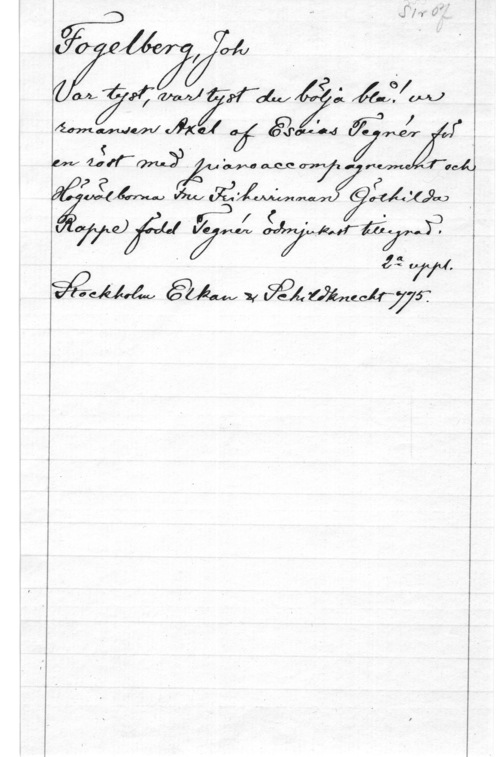 Sv. Röf
Fogelberg, Joh
Var tyst, var tyst du bölja blå! ur
romansen Axel af Esaias Tegnér för
en röst med pianoaccompagnement och
Högvälborna Fru Friherrinnan Göthilda
Rappe född Tegnér ödmjukast tillegnad.
2ª uppl.
Stockholm Elkan & Schildknecht 775.